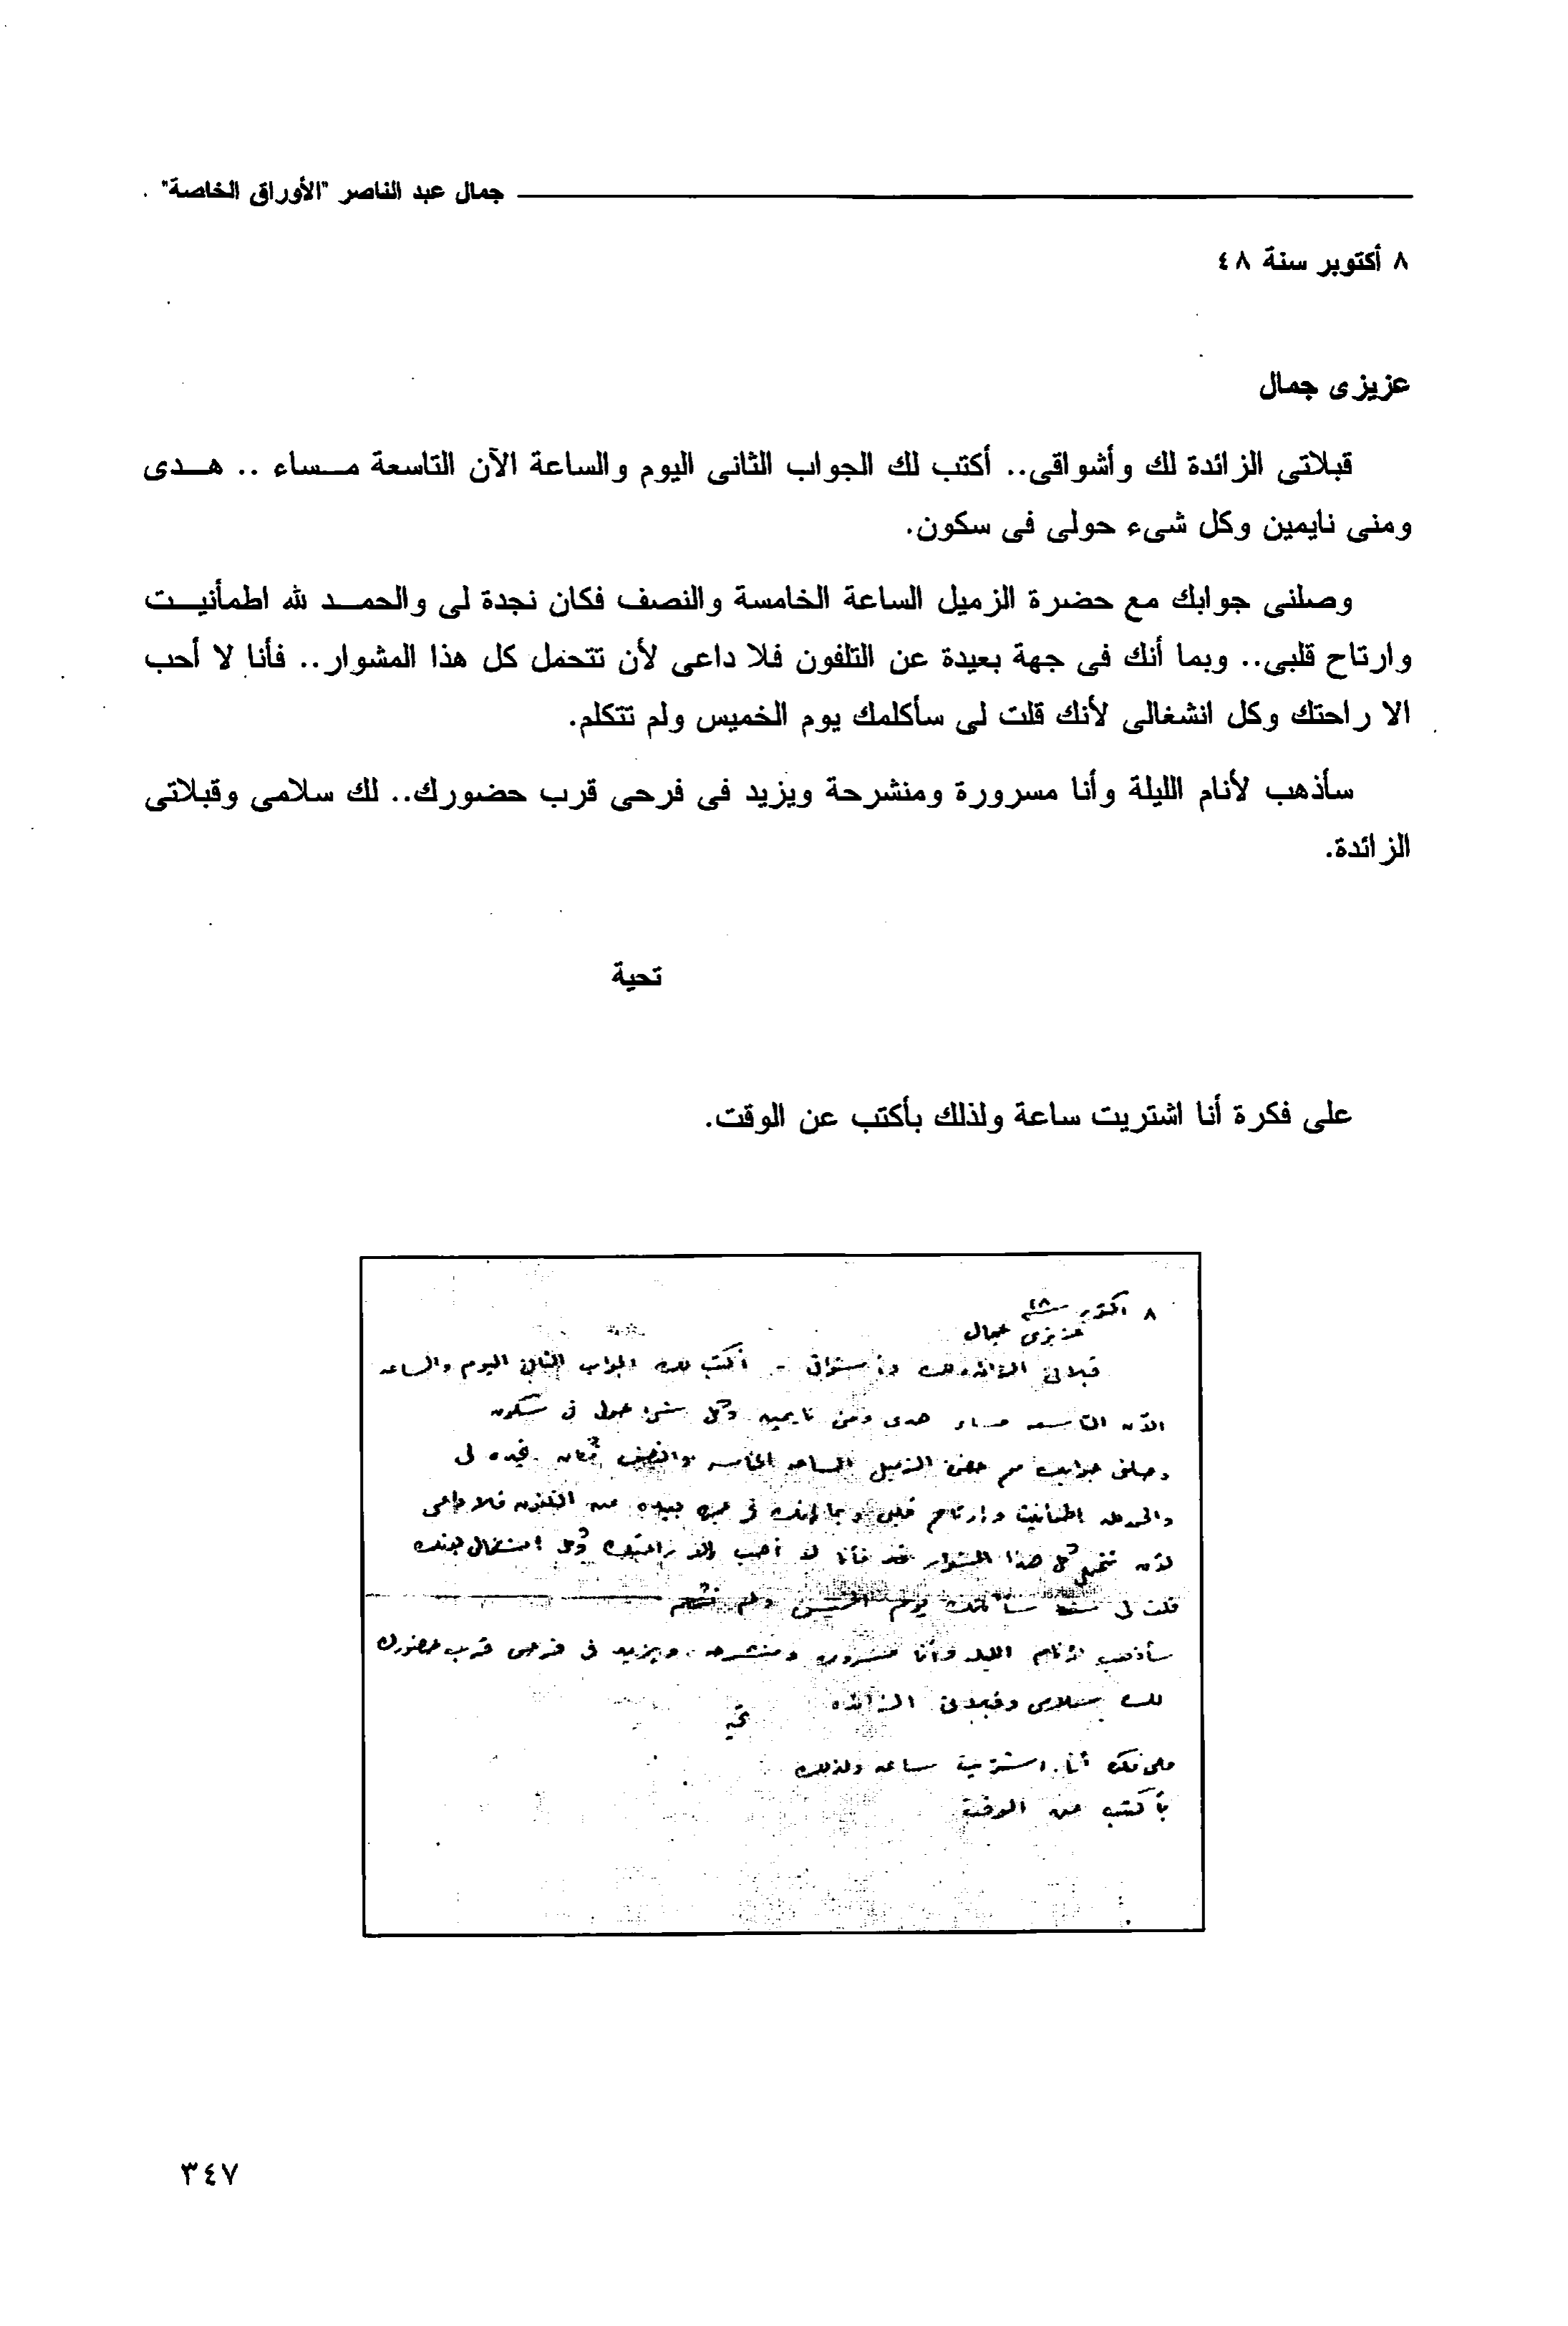 جمال عبد الناصر "الأوراق الخاصة"
٨ أكتوبر سنة ٤٨
عزيزى جمال
قبلاتى الزائدة لك وأشواقى.. أكتب لك الجواب الثانى اليوم والساعة الآن التاسعة مساء .. هدى
ومنى نايمين وكل شىء حولى فى سكون.
وصلنى جوابك مع حضرة الزميل الساعة الخامسة والنصف فكان نجدة لى والحمد لله اطمأنيت
وارتاح قلبى.. وبما أنك فى جهة بعيدة عن التلفون فلا داعى لأن تتحمل كل هذا المشوار.. فأنا لا أحب
الا راحتك وكل انشغالى لأنك قلت لى سأكلمك يوم الخميس ولم تتكلم.
سأذهب لأنام الليلة وأنا مسرورة ومنشرحة ويزيد فى فرحى قرب حضورك.. لك سلامى وقبلاتى
الزائدة.
تحية
على فكرة أنا اشتريت ساعة ولذلك بأكتب عن الوقت.
٨ اكتوبر سنة ٤٨
عزيزى جمال
قبلاتى الزائده لك وأشواقى - أكتب لك الجواب الثانى اليوم والساعه
الآن التاسعه مساء هدى ومنى نايمين وكل شىء حولى فى سكون
وصلنى جوابك مع حضرة الزميل الساعه الخامسه والنصف فكان نجده لى
والحمد لله اطمأنيت وارتاح قلبى وبما إنك فى جهه بعيده عن التلفون فلا داعى
لأن تتحمل كل هذا المشوار فأنا لا أحب إلا راحتك وكل انشغالى لأنك
قلت لى سأكلمك يوم الخميس ولم تتكلم
سأذهب لأنام الليله وأنا مسروره ومنشرحه . ويزيد فى فرحى قرب حضورك
لك سلامى وقبلاتى الزائده
تحيه
على فكره أنا اشتريت ساعه ولذلك
بأكتب عن الوقت
٣٤٧